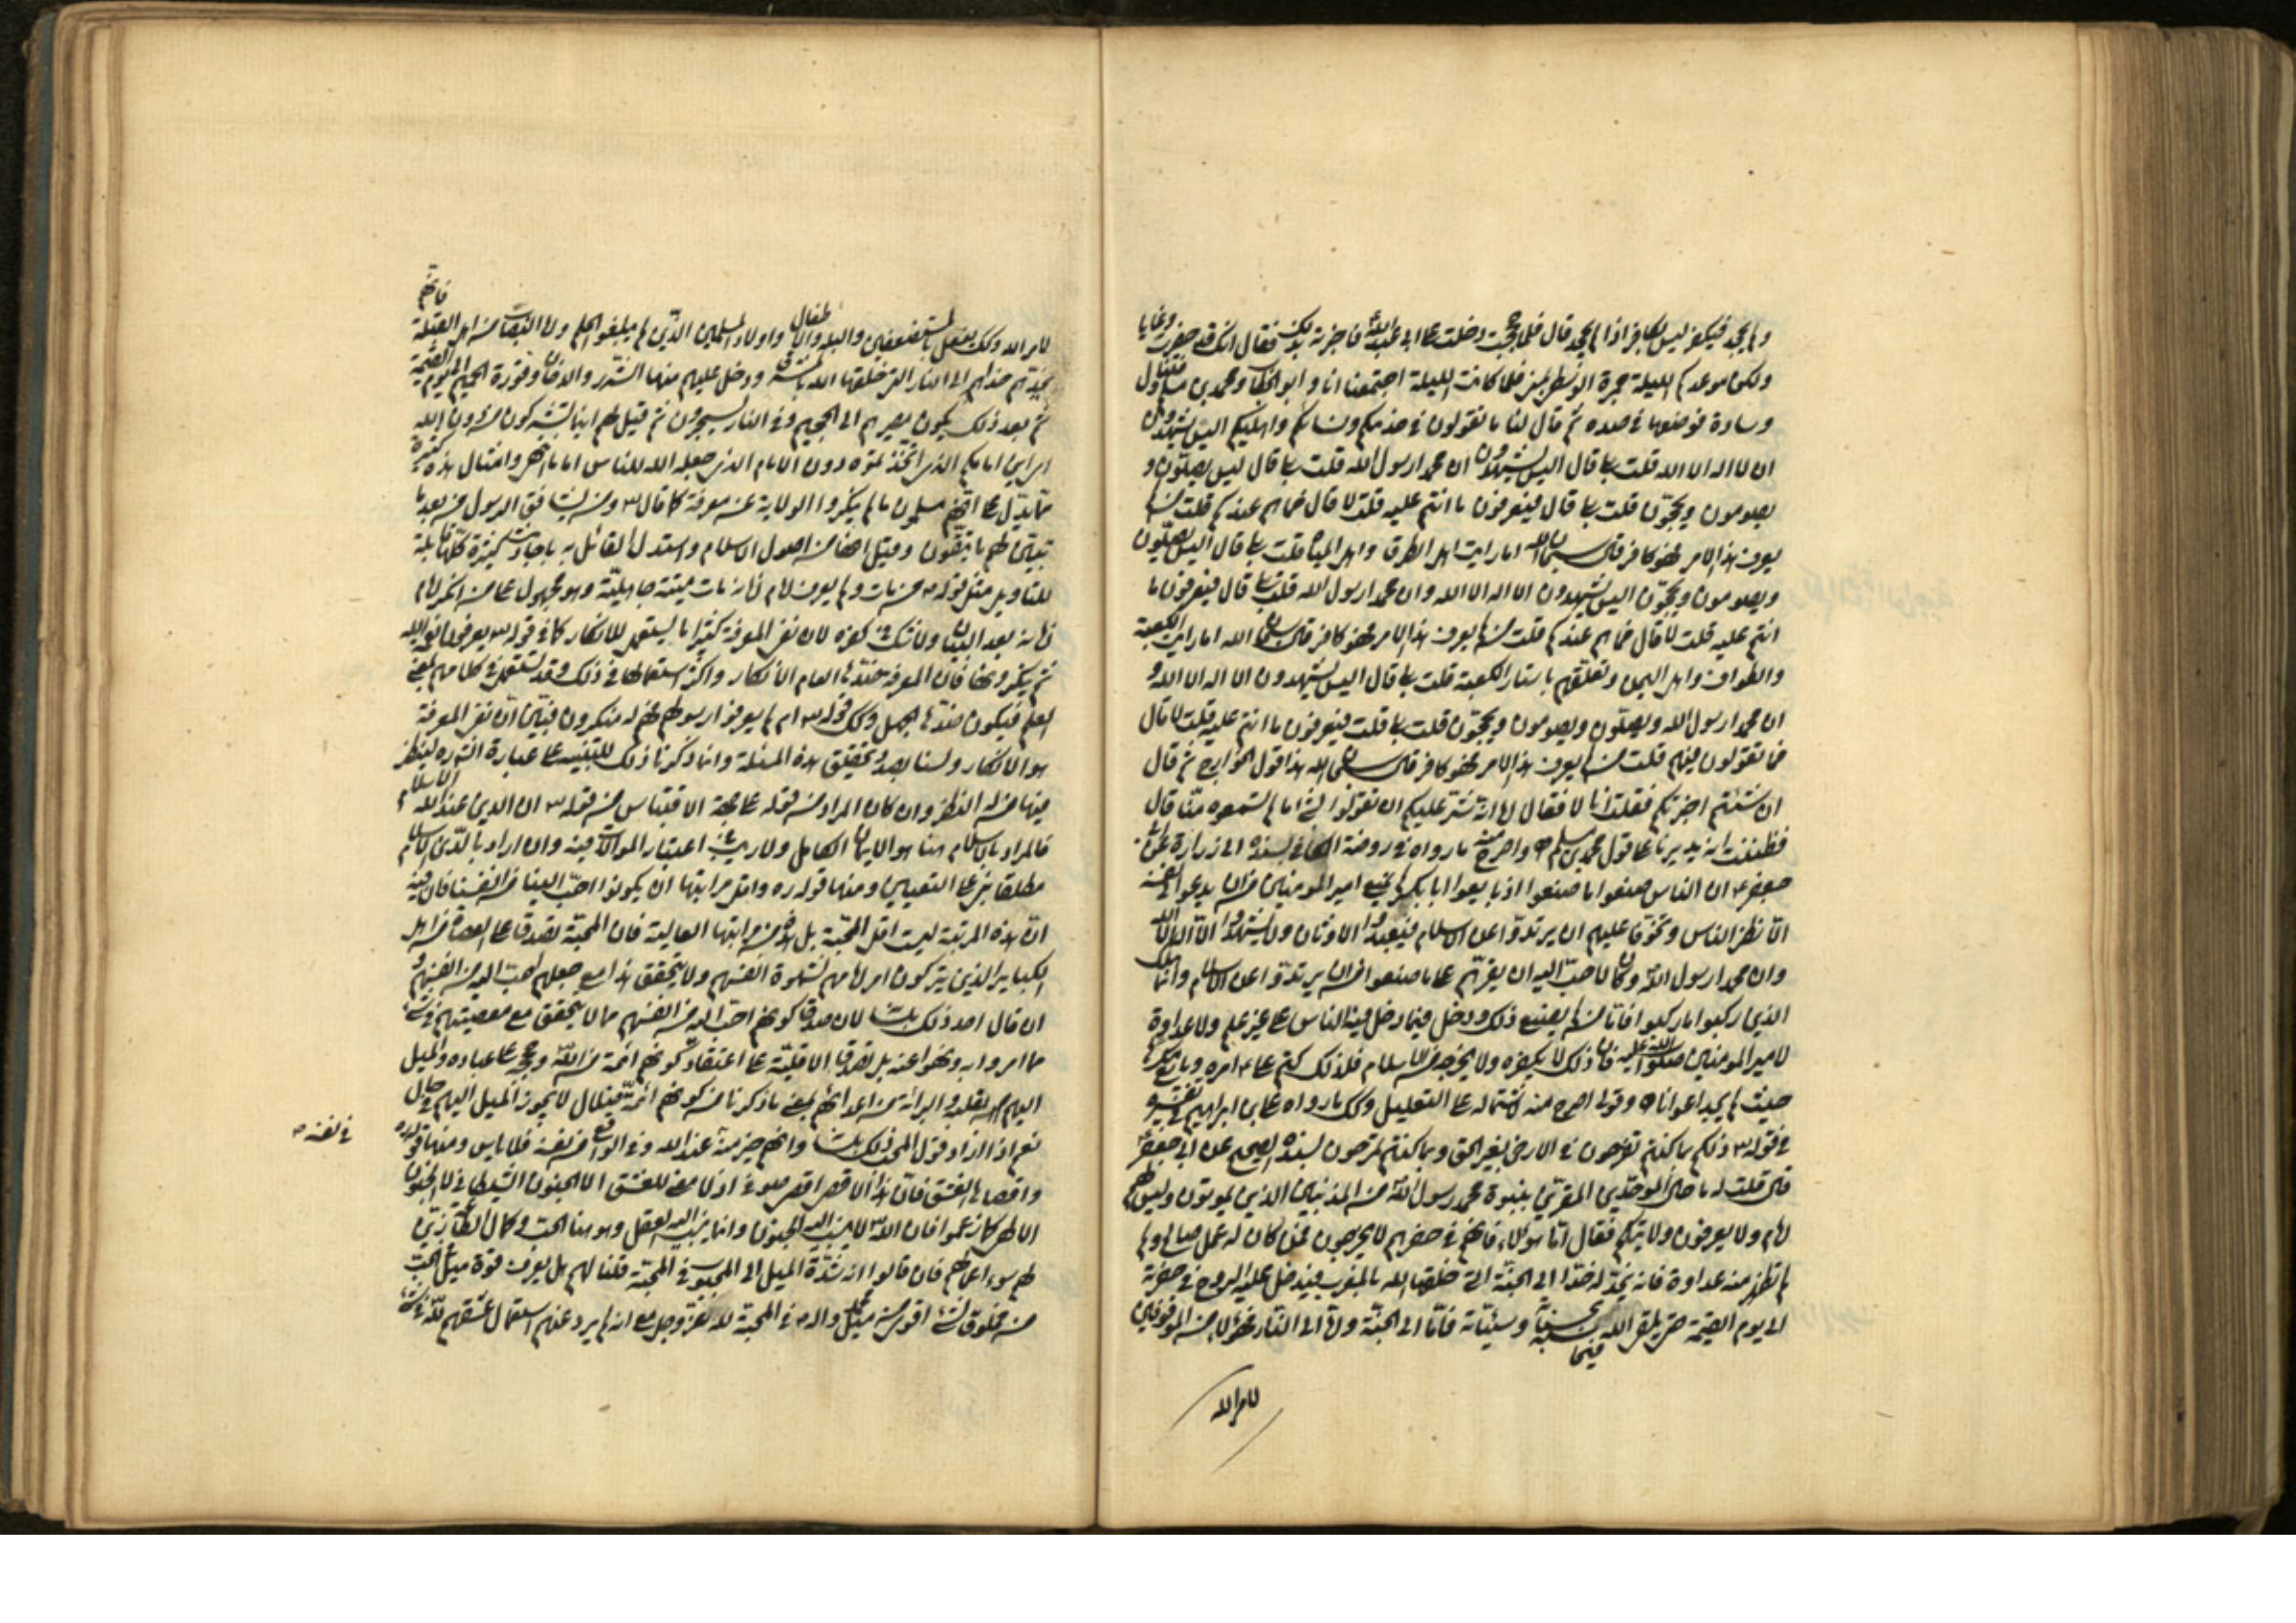 ولم يجحد فيكفر ليس بكافر اذا لم يجحد قال فلما حججت دخلت على ابي عبد الله فاخبرته بذلك فقال انك قد حضرت وغابا
ولكن موعدكم الليلة جمرة الوسطى بمنى فلما كانت الليلة اجتمعنا انا و ابو الخطاب ومحمد بن مسلم فتناول
وسادة فوضعها في صدره ثم قال لنا ما تقولون في خدمكم ونسائكم واهليكم اليس يشهدون
ان لا اله الا الله قلت بلى قال اليس يشهدون ان محمدا رسول الله قلت بلى قال ليس يصلون و
يصومون ويحجون قلت بلى قال فيعرفون ما انتم عليه قلت لا قال فما هم عندكم قلت من لم
يعرف هذا الامر فهو كافر قال سبحان الله اما رايت اهل الطرق واهل المياه قلت بلى قال اليس يصلون
ويصومون ويحجون اليس يشهدون الا اله الا الله وان محمدا رسول الله قلت بلى قال فيعرفون ما
انتم عليه قلت لا قال فما هم عندكم قلت من لم يعرف هذا الامر فهو كافر قال سبحان الله اما رايت الكعبة
والطواف واهل اليمن وتعلقهم باستار الكعبة قلت بلى قال اليس يشهدون الا اله الا الله و
ان محمدا رسول الله ويصلون ويصومون ويحجون قلت بلى قلت فيعرفون ما انتم عليه قلت لا قال
فما تقولون فيهم قلت من لم يعرف هذا الامر فهو كافر قال سبحان الله هذا قول الخوارج ثم قال
ان شئتم اخبرتكم فقلت انا لا فقال اما انه شر عليكم ان تقولوا بشئ اما لم تسمعوه منا قال
فظننت انه يديرنا على قول محمد بن مسلم واصرح منه ما رواه في روضة الكافي بسنده الى زرارة عن ابي
جعفر ع ان الناس صنعوا ما صنعوا اذ بايعوا ابا بكر لم يمنع امير المومنين من ان يدعو الى نفسه
الا نظرا للناس وتخوفا عليهم ان يرتدوا عن الاسلام فيعبدوا الاوثان ولا يشهدوا الا اله الا الله
وان محمدا رسول الله وكان الاحب اليه ان يقرهم على ما صنعوا من ان يرتدوا عن الاسلام وانما هلك
الذين ركبوا ما ركبوا فاما من لم يصنع ذلك ودخل فيما دخل فيه الناس على غير علم ولا عداوة
لامير المومنين صلوات الله عليه فان ذلك لا يكفره ولا يخرجه من الاسلام فلذلك كتم على ع امره وبايع مكرها
حيث لم يجد اعوانا وقولى اصرح منه لاشتماله على التعليل وكك ما رواه على بن ابراهيم في تفسيره
في قوله ذلكم بما كنتم تفرحون في الارض بغير الحق وبما كنتم تمرحون بسنده الصحيح عن ابي جعفر ع
قال قلت له ما حال الموحدين المقرين بنبوة محمد رسول الله من المذنبين الذين يموتون وليس لهم
امام ولا يعرفون ولايتكم فقال اما هؤلاء فانهم في حفرهم لا يخرجون فمن كان له عمل صالح ولم
يظهر منه عداوة فانه يخد له خدا الى الجنة التي خلقها الله بالمغرب فيدخل عليه الروح في حفرته
الى يوم القيمة حتى يلقى الله فيحاسبه بحسناته وسيئاته فاما الى الجنة واما الى النار فهؤلاء من الموقوفين
لامر الله
فانهم
لامر الله وكك يفعل بالمستضعفين والبله والاطفال واولاد المسلمين الذين لم يبلغوا الحلم واما النصاب من اهل القبلة
يخد لهم خدا لهم الى النار التي خلقها الله بالمشرق ودخل عليهم منها الشرر والدخان وفورة الجحيم الى يوم القيمة
ثم بعد ذلك يكون مصيرهم الى الجحيم وفي النار يسجرون ثم قيل لهم اينما تشركون من دون الله
اي اين امامكم الذي اتخذتموه دون الامام الذي جعله الله للناس اماما انتهى وامثال هذه كثيرة
مما يدل على انهم مسلمون ما لم ينكروا الولاية عن معرفة كما قال ومن يشاقق الرسول من بعد ما
تبين لهم ما يتقون وقيل انها من اصول الاسلام واستدل القائل به باخبار كثيرة كلها قابلة
للتاويل مثل قوله من مات ولم يعرف امام زمانه مات ميتة جاهلية وهو محمول على من انكر امام
زمانه بعد البيان ولا شك في كفره لان نفى المعرفة كثيرا ما يستعمل للانكار كما في قوله يعرفون نعمة الله
ثم ينكرونها فان المعرفة ضدها العام الانكار واكثر استعمالها في ذلك وقد تستعمل في كلامهم بمعنى
العلم فيكون ضدها الجهل وكك قوله ام لم يعرفوا رسولهم فهم له منكرون فتبين ان نفى المعرفة
هو الانكار ولسنا بصدد تحقيق هذه المسئلة وانما ذكرنا ذلك للتنبيه على عبارة الشره لينظر
فيها من له النظر وان كان المراد من قوله على جهة الاقتباس من قوله ان الدين عند الله الاسلام
فالمراد بالاسلام هنا هو الايمان الكامل ولا ريب في اعتبار الموالات فيه وان اراد بالدين الاسلام
مطلقا بنى على التعيين ومنها قوله ره واقل مراتبها ان يكونوا احب الينا من انفسنا فان فيه
ان هذه المرتبة ليست اقل المحبة بل هي من مراتبها العالية فان المحبة تصدق على العصاة من اهل
الكبائر الذين يتركون امرهم لشهوة انفسهم ولا يتحقق هذا مع جعلهم احب اليه من انفسهم و
ان قال احد ذلك بلسانه لان صدق كونهم احب اليه من انفسهم مما لا يتحقق مع معصيتهم في شئ
مما امروا به ونهوا عنه بل تصدق الاقلية على اعتقاد كونهم ائمة من الله وحججه على عباده والميل
اليهم بالقلب والبرائة من اعدائهم بمعنى ما ذكرنا من كونهم ائمة ضلال لا يجوز الميل اليهم في حال
نعم اذا اراد قول المحب ذلك بلسانه وانهم خير منه عند الله وفي الواقع من نفسه فلا باس ومنها قوله ره
في نفسه
واقصاها العشق فان هذا الاقصى اقصى ممنوع اذ لا معنى للعشق الا الجنون الشيطاني لا الجنون
الالهي كما زعموا فان الله لا ينسب اليه الجنون وانما ينسب اليه العقل وهو هنا الحب وكمال انما زين
لهم سوء اعمالهم فان قالوا انه شدة الميل الى المحبوب في المحبة قلنا لهم بل يعرف قوة ميل الحب
من مخلوق لشئ اقوى من ميل محمد واله في المحبة لله عز وجل مع انه لم يرد عنهم استعمال عشقهم لله في شئ